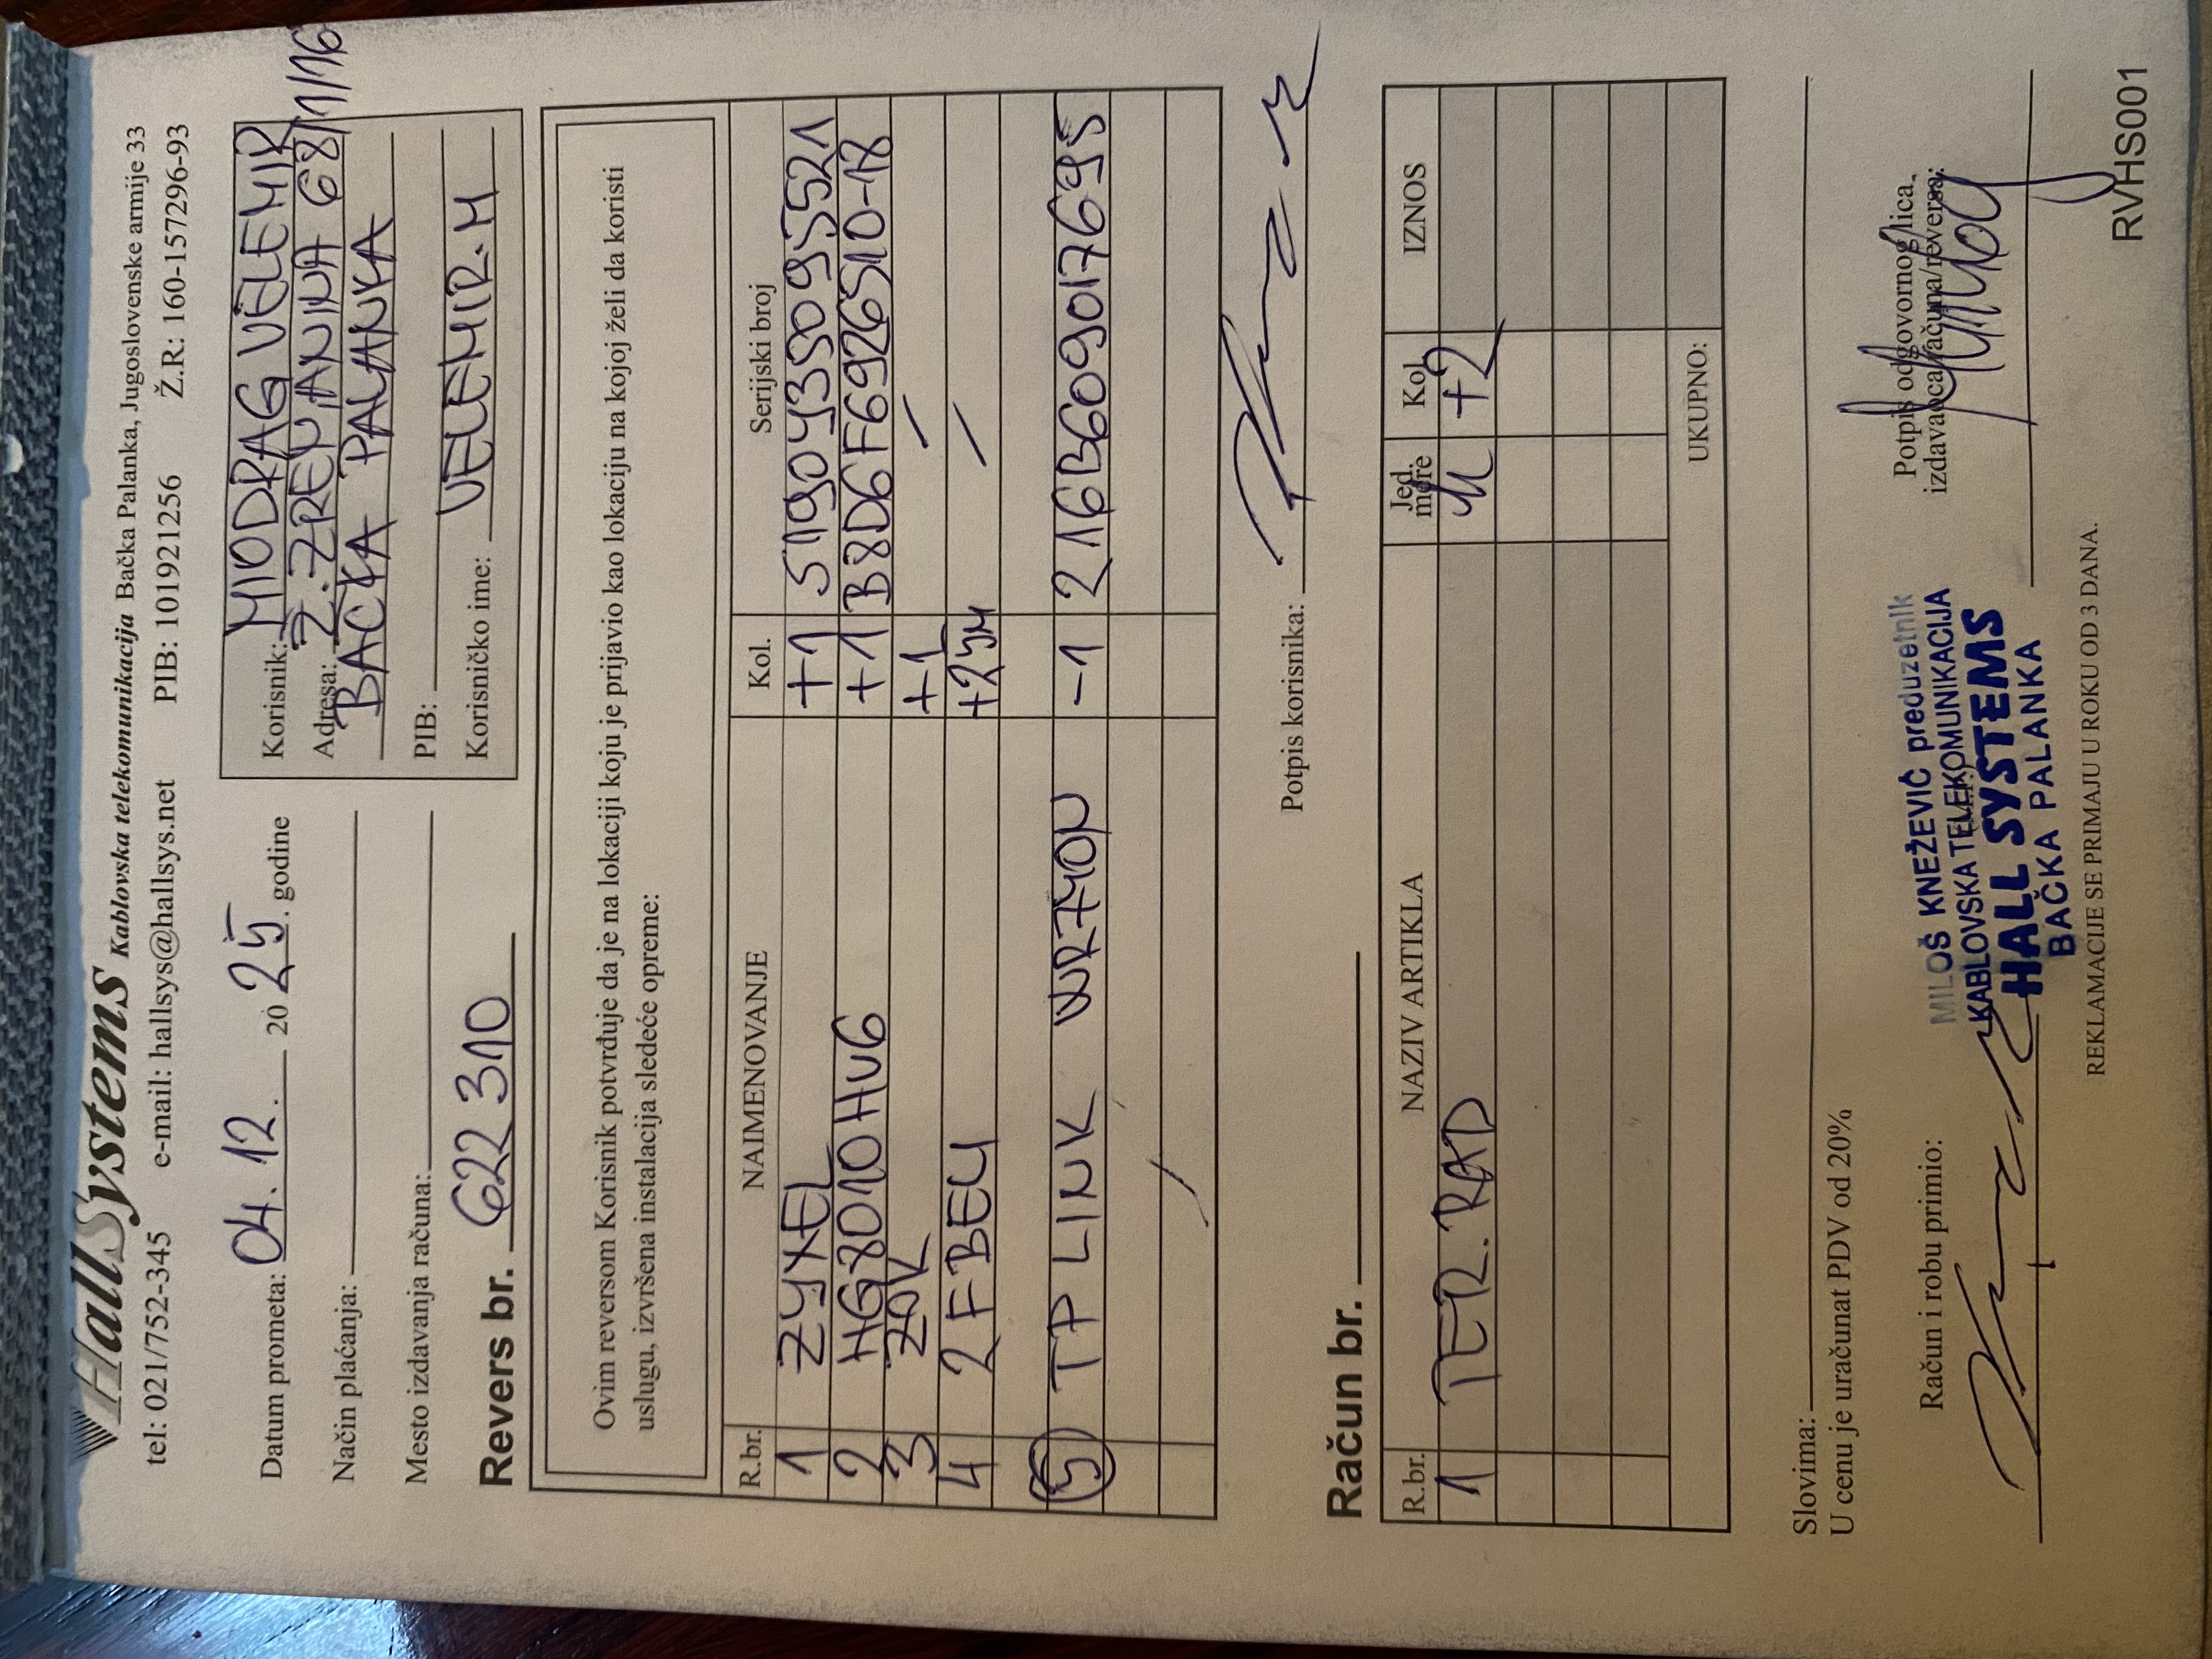 HallSystems Kablovska telekomunikacija Bačka Palanka, Jugoslovenske armije 33
tel: 021/752-345 e-mail: hallsys@hallsys.net PIB: 101921256 Ž.R: 160-157296-93
Datum prometa: 04. 12. 20 25. godine
Način plaćanja:
Mesto izdavanja računa:
Revers br. 622 310
Korisnik: MIODRAG VELEMIR
Adresa: Ž. ZRENJANINA 68/1/16
BAČKA PALANKA
PIB:
Korisničko ime: VELEMIR.M
Ovim reversom Korisnik potvrđuje da je na lokaciji koju je prijavio kao lokaciju na kojoj želi da koristi
uslugu, izvršena instalacija sledeće opreme:
R.br. NAIMENOVANJE Kol. Serijski broj
1 ZYXEL +1 S190Y35095521
2 HG8010HV6 +1 B8D6F6926510-18
3 ZOK +1 /
4 2FBEU +25M /
5 TP LINK WR740N -1 216B609017695
Potpis korisnika:
Račun br.
R.br. NAZIV ARTIKLA Jed. mere Kol. IZNOS
1 TER. RAD +2
UKUPNO:
Slovima:
U cenu je uračunat PDV od 20%
Račun i robu primio:
MILOŠ KNEŽEVIĆ preduzetnik
KABLOVSKA TELEKOMUNIKACIJA
HALL SYSTEMS
BAČKA PALANKA
Potpis odgovornog lica,
izdavaoca računa/reversa:
REKLAMACIJE SE PRIMAJU U ROKU OD 3 DANA.
RVHS001